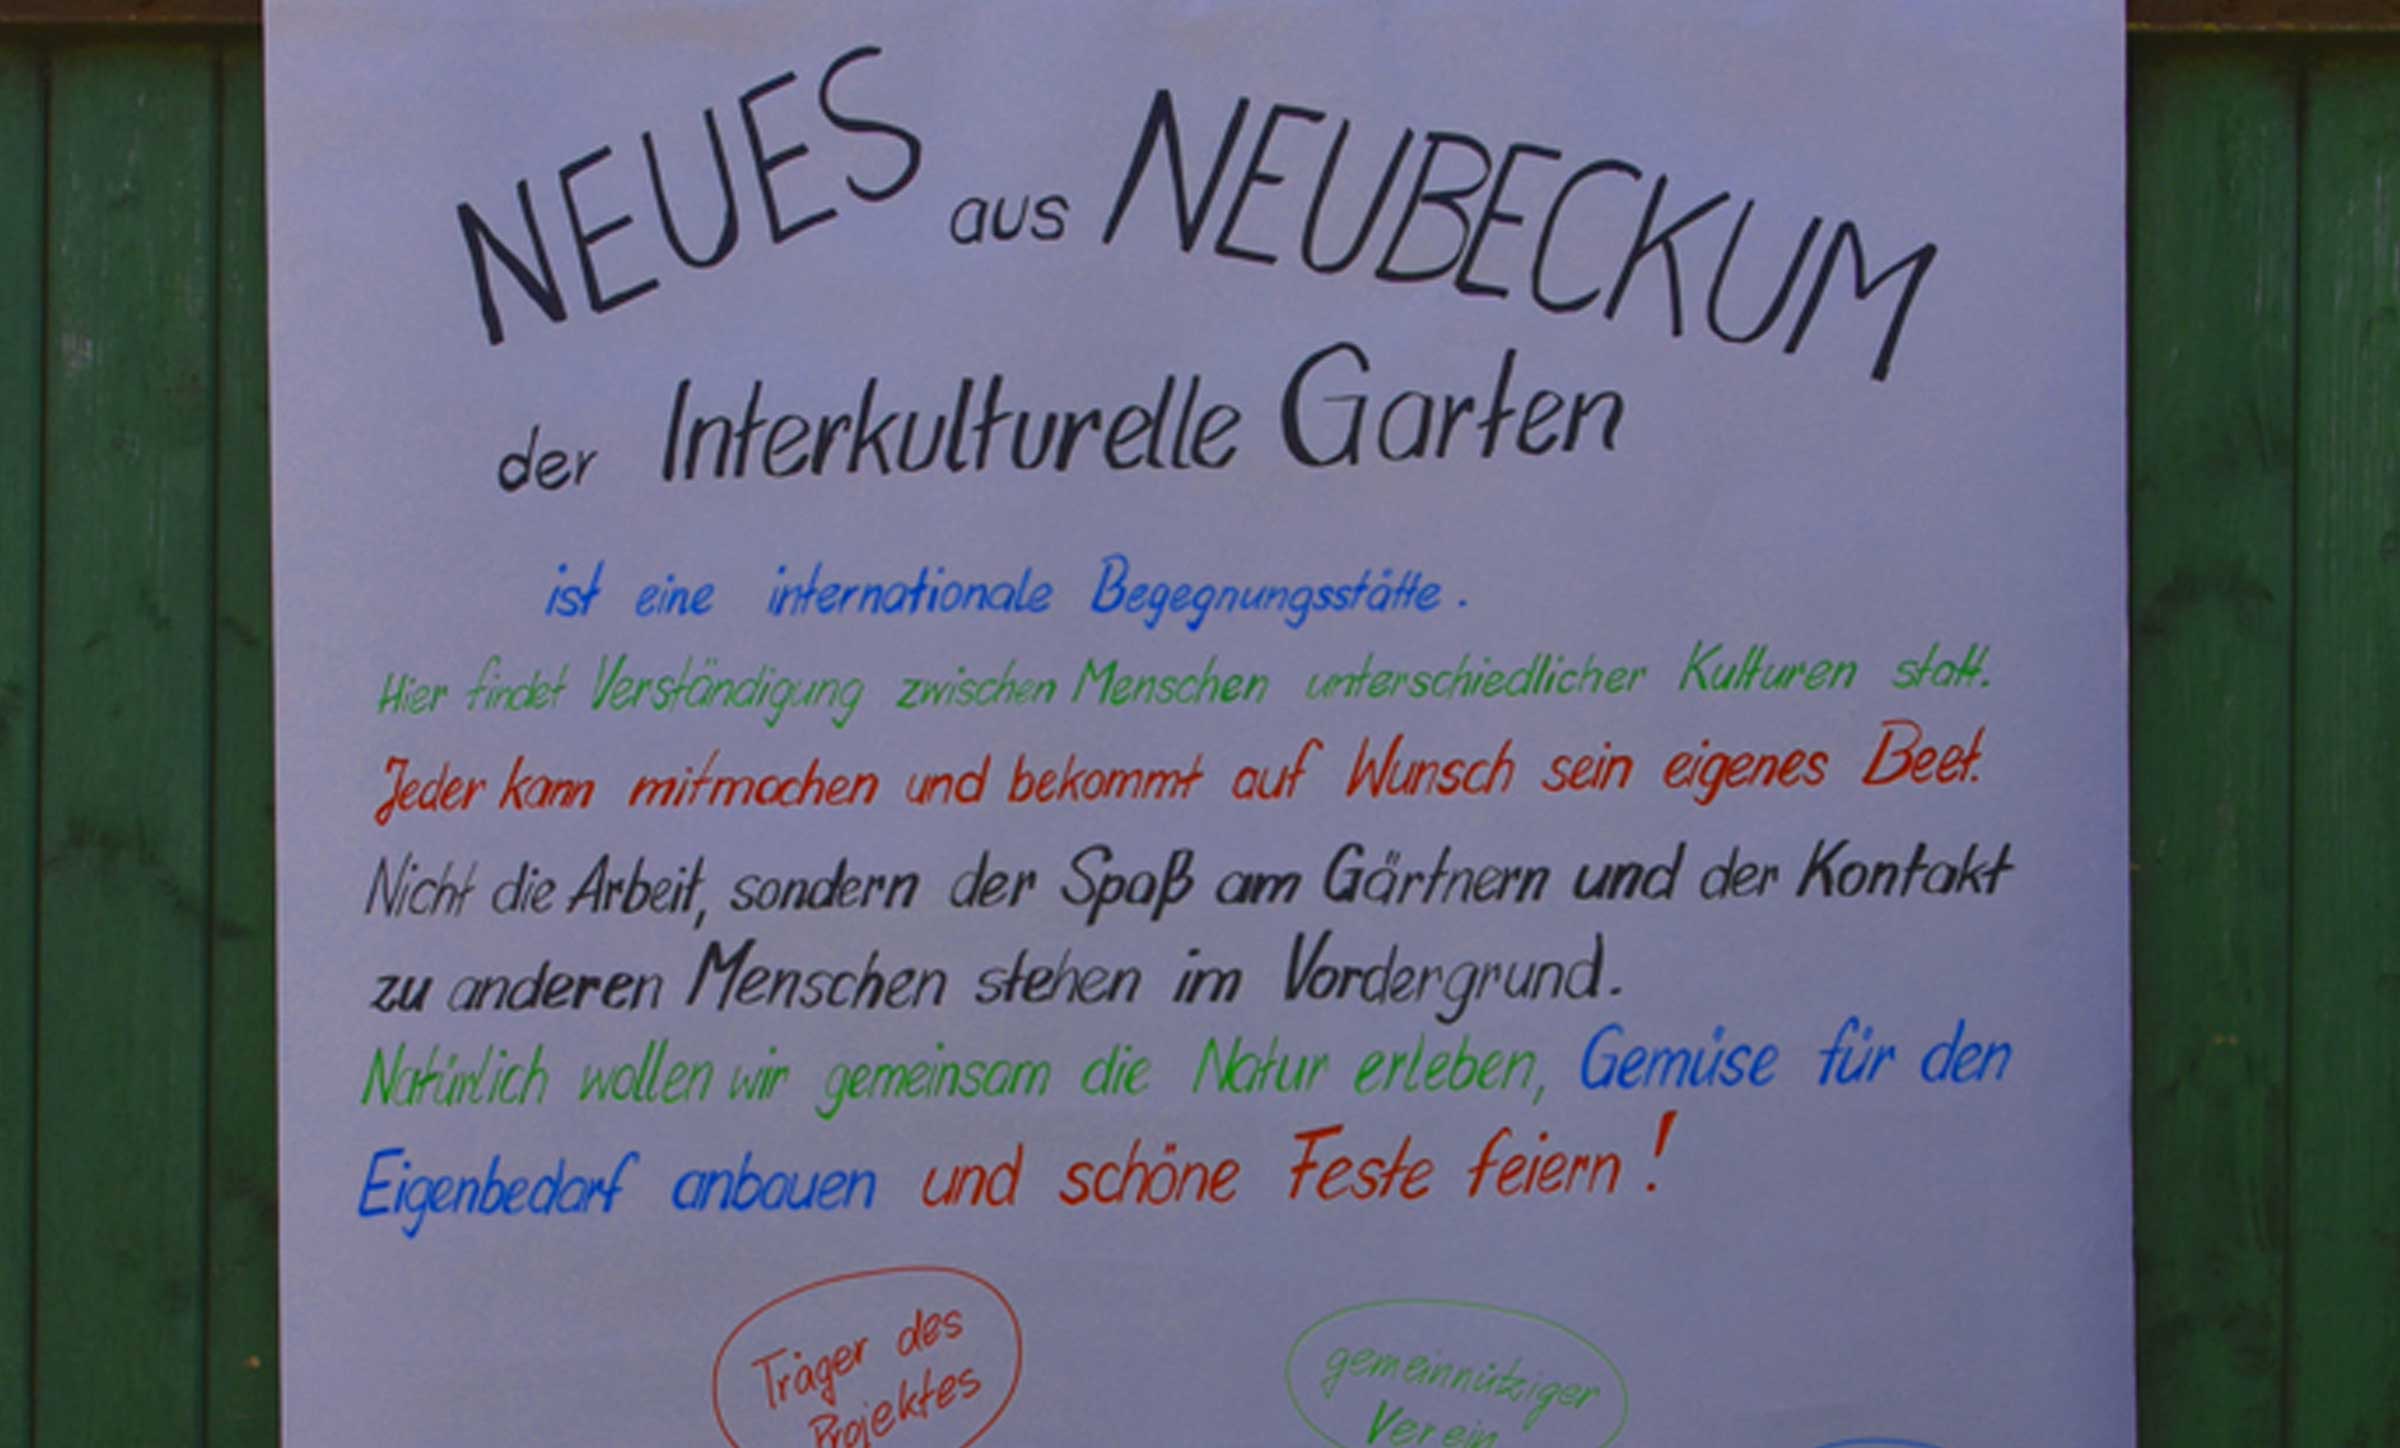 NEUES aus NEUBECKUM
der Interkulturelle Garten
ist eine internationale Begegnungsstätte.
Hier findet Verständigung zwischen Menschen unterschiedlicher Kulturen statt.
Jeder kann mitmachen und bekommt auf Wunsch sein eigenes Beet.
Nicht die Arbeit, sondern der Spaß am Gärtnern und der Kontakt
zu anderen Menschen stehen im Vordergrund.
Natürlich wollen wir gemeinsam die Natur erleben, Gemüse für den
Eigenbedarf anbauen und schöne Feste feiern!
Träger des
Projektes
gemeinnütziger
Verein